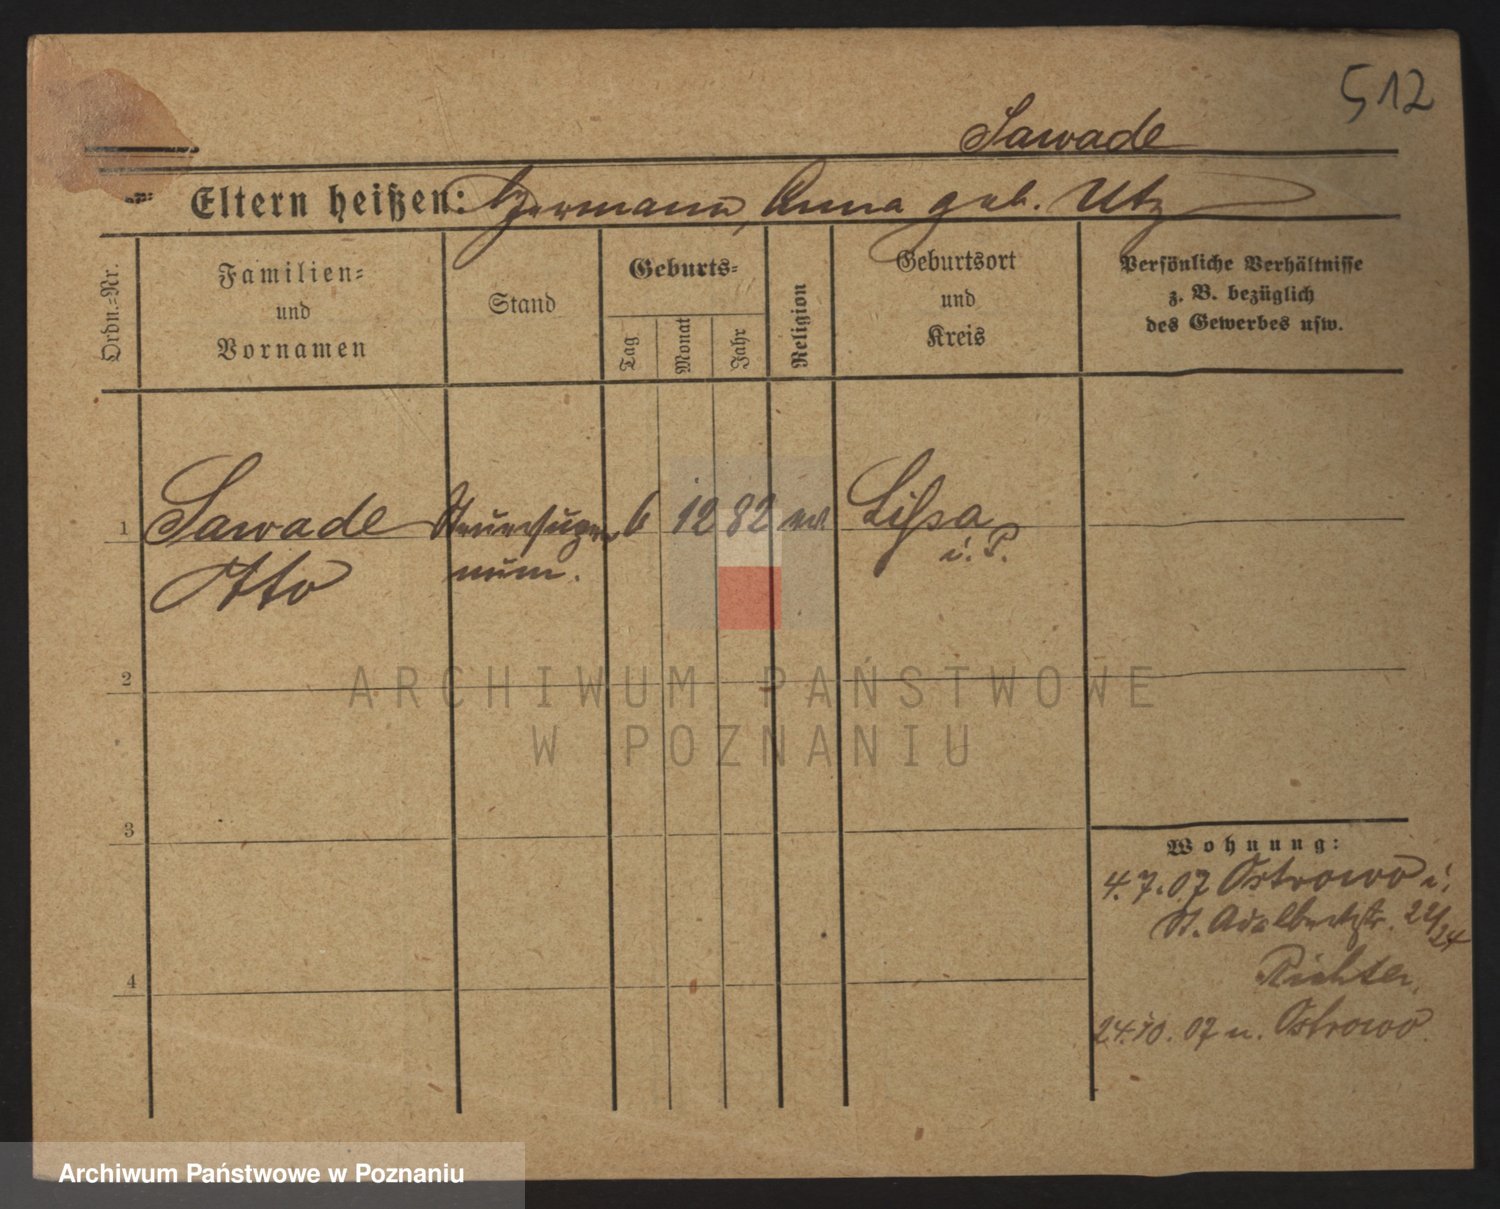 512
Sawade
Eltern heißen: Hermann, Anna geb. Utz
Ordn.-Nr.
Familien-
und
Vornamen
Stand
Geburts-
Tag
Monat
Jahr
Religion
Geburtsort
und
Kreis
Persönliche Verhältnisse
z. B. bezüglich
des Gewerbes usw.
1 Sawade 6 12 82 ev Lissa
Otto num. i. P.
2
3
4
Wohnung:
4.7.07 Ostrowo i.
St. Adalbertstr. 22/24
Richter.
24.10.07 n. Ostrowo.
ARCHIWUM PAŃSTWOWE
W POZNANIU
Archiwum Państwowe w Poznaniu